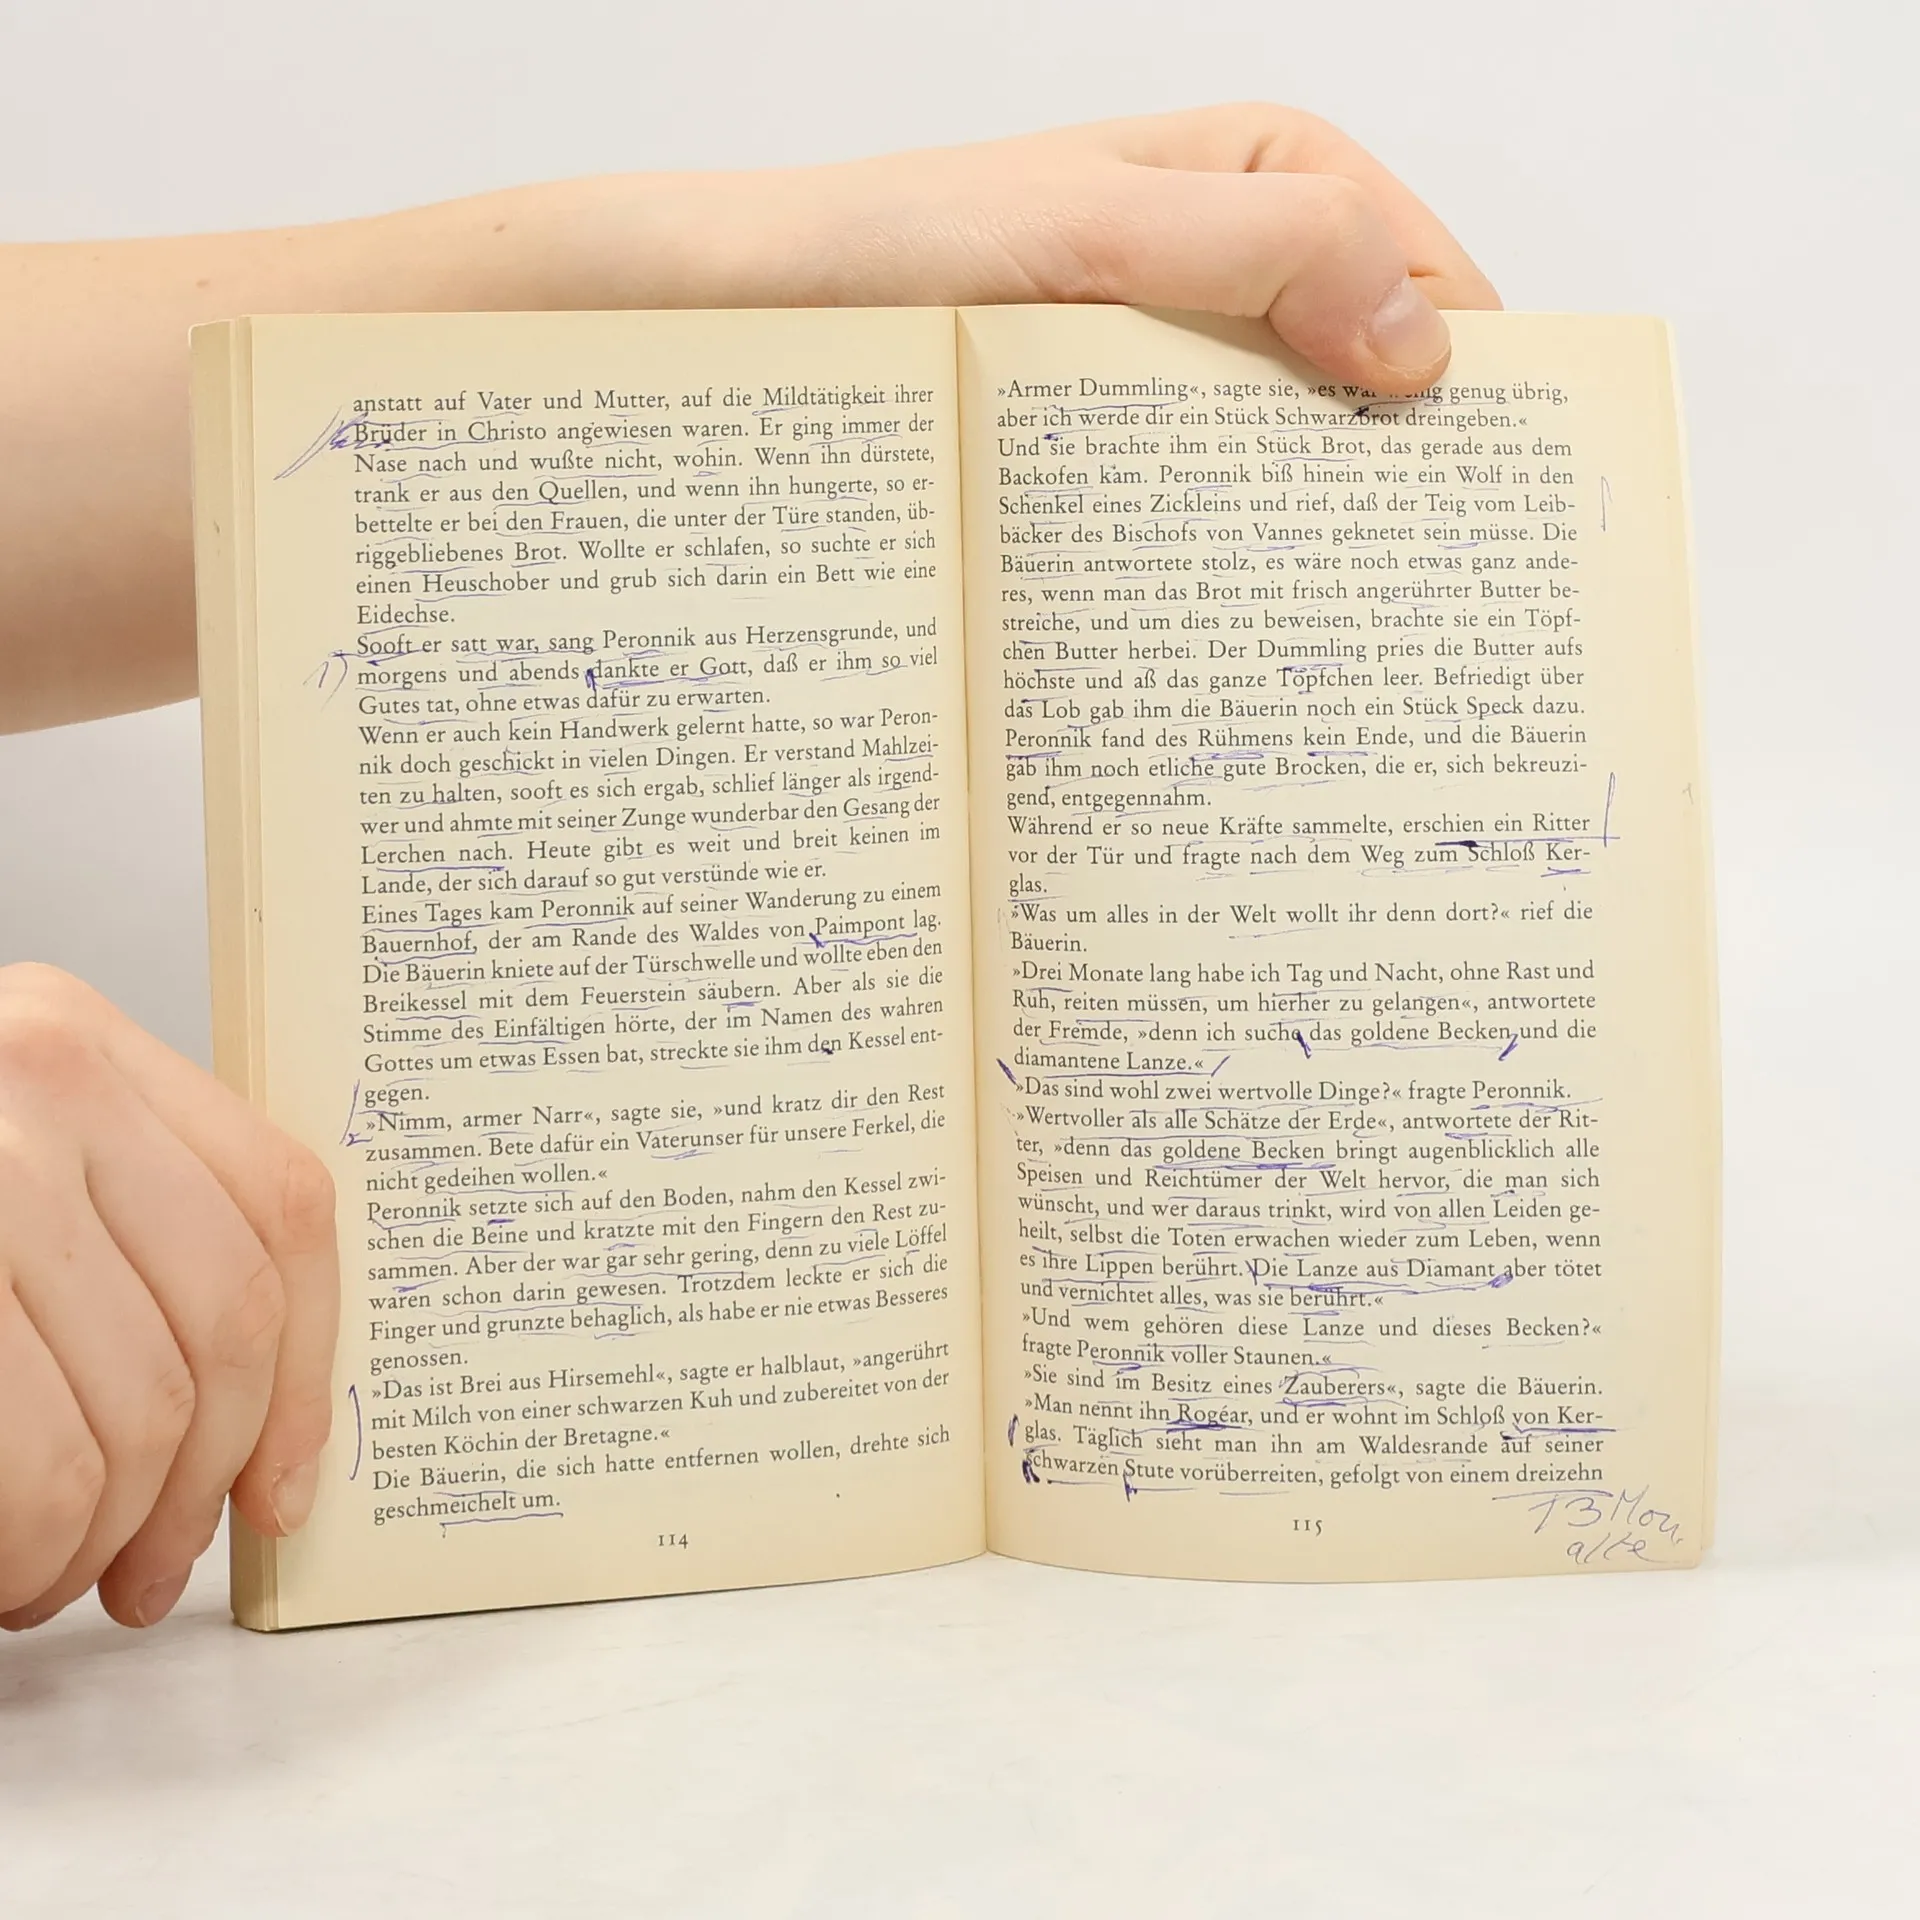 anstatt auf Vater und Mutter, auf die Mildtätigkeit ihrer
Brüder in Christo angewiesen waren. Er ging immer der
Nase nach und wußte nicht, wohin. Wenn ihn dürstete,
trank er aus den Quellen, und wenn ihn hungerte, so er-
bettelte er bei den Frauen, die unter der Türe standen, üb-
riggebliebenes Brot. Wollte er schlafen, so suchte er sich
einen Heuschober und grub sich darin ein Bett wie eine
Eidechse.
Sooft er satt war, sang Peronnik aus Herzensgrunde, und
morgens und abends dankte er Gott, daß er ihm so viel
Gutes tat, ohne etwas dafür zu erwarten.
Wenn er auch kein Handwerk gelernt hatte, so war Peron-
nik doch geschickt in vielen Dingen. Er verstand Mahlzei-
ten zu halten, sooft es sich ergab, schlief länger als irgend-
wer und ahmte mit seiner Zunge wunderbar den Gesang der
Lerchen nach. Heute gibt es weit und breit keinen im
Lande, der sich darauf so gut verstünde wie er.
Eines Tages kam Peronnik auf seiner Wanderung zu einem
Bauernhof, der am Rande des Waldes von Paimpont lag.
Die Bäuerin kniete auf der Türschwelle und wollte eben den
Breikessel mit dem Feuerstein säubern. Aber als sie die
Stimme des Einfältigen hörte, der im Namen des wahren
Gottes um etwas Essen bat, streckte sie ihm den Kessel ent-
gegen.
»Nimm, armer Narr«, sagte sie, »und kratz dir den Rest
zusammen. Bete dafür ein Vaterunser für unsere Ferkel, die
nicht gedeihen wollen.«
Peronnik setzte sich auf den Boden, nahm den Kessel zwi-
schen die Beine und kratzte mit den Fingern den Rest zu-
sammen. Aber der war gar sehr gering, denn zu viele Löffel
waren schon darin gewesen. Trotzdem leckte er sich die
Finger und grunzte behaglich, als habe er nie etwas Besseres
genossen.
»Das ist Brei aus Hirsemehl«, sagte er halblaut, »angerührt
mit Milch von einer schwarzen Kuh und zubereitet von der
besten Köchin der Bretagne.«
Die Bäuerin, die sich hatte entfernen wollen, drehte sich
geschmeichelt um.
114
»Armer Dummling«, sagte sie, »es war genug übrig,
aber ich werde dir ein Stück Schwarzbrot dreingeben.«
Und sie brachte ihm ein Stück Brot, das gerade aus dem
Backofen kam. Peronnik biß hinein wie ein Wolf in den
Schenkel eines Zickleins und rief, daß der Teig vom Leib-
bäcker des Bischofs von Vannes geknetet sein müsse. Die
Bäuerin antwortete stolz, es wäre noch etwas ganz ande-
res, wenn man das Brot mit frisch angerührter Butter be-
streiche, und um dies zu beweisen, brachte sie ein Töpf-
chen Butter herbei. Der Dummling pries die Butter aufs
höchste und aß das ganze Töpfchen leer. Befriedigt über
das Lob gab ihm die Bäuerin noch ein Stück Speck dazu.
Peronnik fand des Rühmens kein Ende, und die Bäuerin
gab ihm noch etliche gute Brocken, die er, sich bekreuzi-
gend, entgegennahm.
Während er so neue Kräfte sammelte, erschien ein Ritter
vor der Tür und fragte nach dem Weg zum Schloß Ker-
glas.
»Was um alles in der Welt wollt ihr denn dort?« rief die
Bäuerin.
»Drei Monate lang habe ich Tag und Nacht, ohne Rast und
Ruh, reiten müssen, um hierher zu gelangen«, antwortete
der Fremde, »denn ich suche das goldene Becken und die
diamantene Lanze.«
»Das sind wohl zwei wertvolle Dinge?« fragte Peronnik.
»Wertvoller als alle Schätze der Erde«, antwortete der Rit-
ter, »denn das goldene Becken bringt augenblicklich alle
Speisen und Reichtümer der Welt hervor, die man sich
wünscht, und wer daraus trinkt, wird von allen Leiden ge-
heilt, selbst die Toten erwachen wieder zum Leben, wenn
es ihre Lippen berührt. Die Lanze aus Diamant aber tötet
und vernichtet alles, was sie berührt.«
»Und wem gehören diese Lanze und dieses Becken?«
fragte Peronnik voller Staunen.«
»Sie sind im Besitz eines Zauberers«, sagte die Bäuerin.
»Man nennt ihn Rogéar, und er wohnt im Schloß von Ker-
glas. Täglich sieht man ihn am Waldesrande auf seiner
schwarzen Stute vorüberreiten, gefolgt von einem dreizehn
115
13 Mon
alte